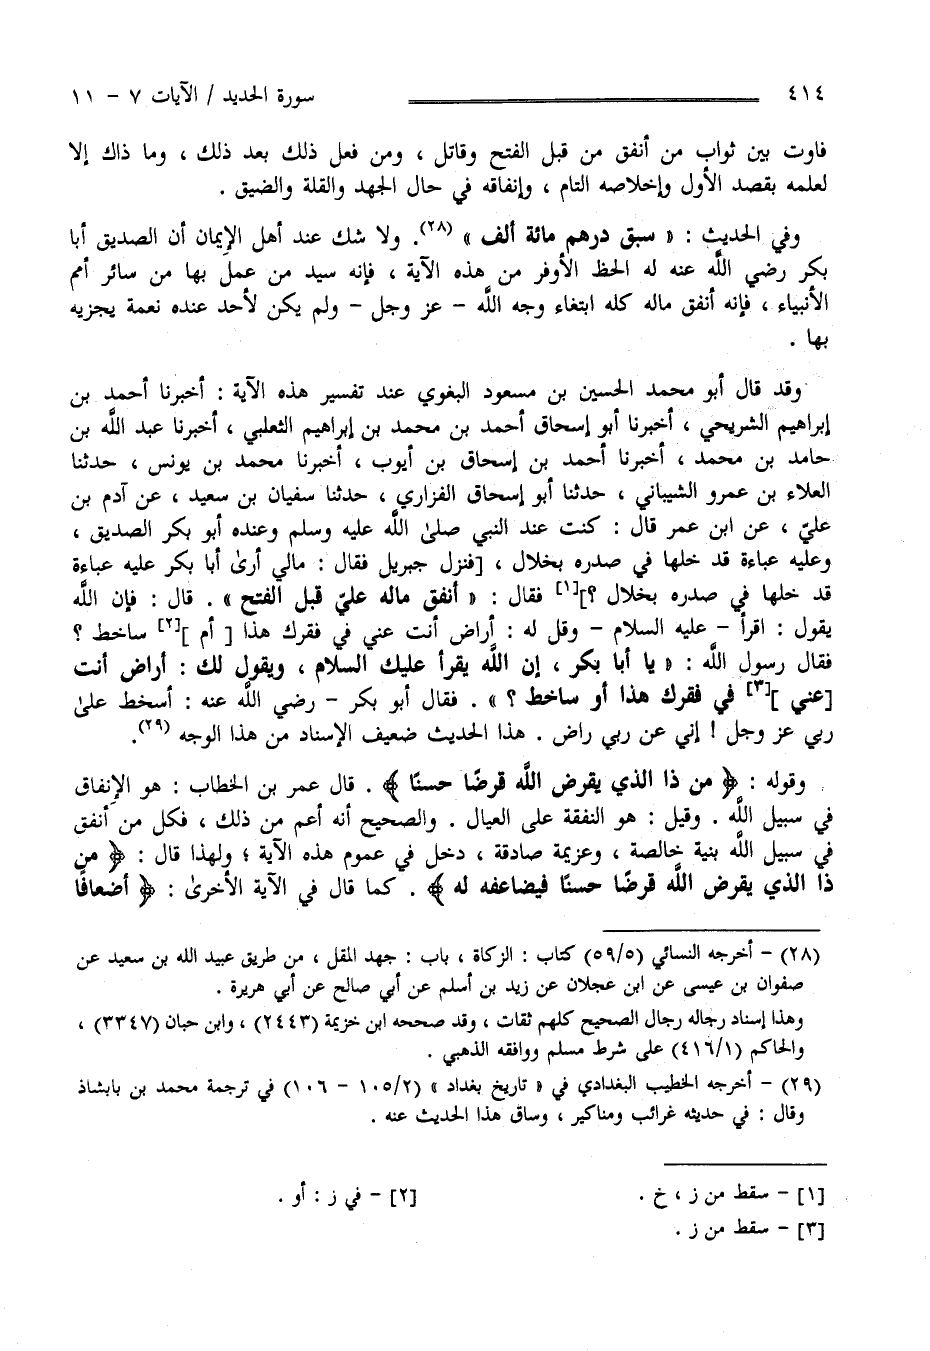 ٤١٤ سورة الحديد / الآيات ٧ - ١١
فاوت بين ثواب من أنفق من قبل الفتح وقاتل ، ومن فعل ذلك بعد ذلك ، وما ذاك إلا
لعلمه بقصد الأول وإخلاصه التام ، وإنفاقه في حال الجهد والقلة والضيق .
وفي الحديث : « سبق درهم مائة ألف » (٢٨). ولا شك عند أهل الإيمان أن الصديق أبا
بكر رضي اللَّه عنه له الحظ الأوفر من هذه الآية ، فإنه سيد من عمل بها من سائر أمم
الأنبياء ، فإنه أنفق ماله كله ابتغاء وجه اللَّه - عز وجل - ولم يكن لأحد عنده نعمة يجزيه
بها .
وقد قال أبو محمد الحسين بن مسعود البغوي عند تفسير هذه الآية : أخبرنا أحمد بن
إبراهيم الشريحي ، أخبرنا أبو إسحاق أحمد بن محمد بن إبراهيم الثعلبي ، أخبرنا عبد اللَّه بن
حامد بن محمد ، أخبرنا أحمد بن إسحاق بن أيوب ، أخبرنا محمد بن يونس ، حدثنا
العلاء بن عمرو الشيباني ، حدثنا أبو إسحاق الفزاري ، حدثنا سفيان بن سعيد ، عن آدم بن
عليّ ، عن ابن عمر قال : كنت عند النبي صلىٰ اللَّه عليه وسلم وعنده أبو بكر الصديق ،
وعليه عباءة قد خلها في صدره بخلال ، [فنزل جبريل فقال : مالي أرىٰ أبا بكر عليه عباءة
قد خلها في صدره بخلال ؟][١] فقال : « أنفق ماله عليّ قبل الفتح » . قال : فإن اللَّه
يقول : اقرأ - عليه السلام - وقل له : أراض أنت عني في فقرك هذا [ أم ][٢] ساخط ؟
فقال رسول اللَّه : « يا أبا بكر ، إن اللَّه يقرأ عليك السلام ، ويقول لك : أراض أنت
[عني ][٣] في فقرك هذا أو ساخط ؟ » . فقال أبو بكر - رضي اللَّه عنه : أسخط علىٰ
ربي عز وجل ! إني عن ربي راض . هذا الحديث ضعيف الإسناد من هذا الوجه (٢٩).
وقوله : ﴿ من ذا الذي يقرض اللَّه قرضًا حسنًا ﴾ . قال عمر بن الخطاب : هو الإنفاق
في سبيل اللَّه . وقيل : هو النفقة على العيال . والصحيح أنه أعم من ذلك ، فكل من أنفق
في سبيل اللَّه بنية خالصة ، وعزيمة صادقة ، دخل في عموم هذه الآية ؛ ولهذا قال : ﴿ من
ذا الذي يقرض اللَّه قرضًا حسنًا فيضاعفه له ﴾ . كما قال في الآية الأخرىٰ : ﴿ أضعافًا
(٢٨) - أخرجه النسائي (٥٩/٥) كتاب : الزكاة ، باب : جهد المقل ، من طريق عبيد الله بن سعيد عن
صفوان بن عيسى عن ابن عجلان عن زيد بن أسلم عن أبي صالح عن أبي هريرة .
وهذا إسناد رجاله رجال الصحيح كلهم ثقات ، وقد صححه ابن خزيمة (٢٤٤٣) ، وابن حبان (٣٣٤٧) ،
والحاكم (٤١٦/١) على شرط مسلم ووافقه الذهبي .
(٢٩) - أخرجه الخطيب البغدادي في « تاريخ بغداد » (١٠٥/٢ - ١٠٦) في ترجمة محمد بن بابشاذ
وقال : في حديثه غرائب ومناكير ، وساق هذا الحديث عنه .
[١] - سقط من ز ، خ . [٢] - في ز : أو .
[٣] - سقط من ز .